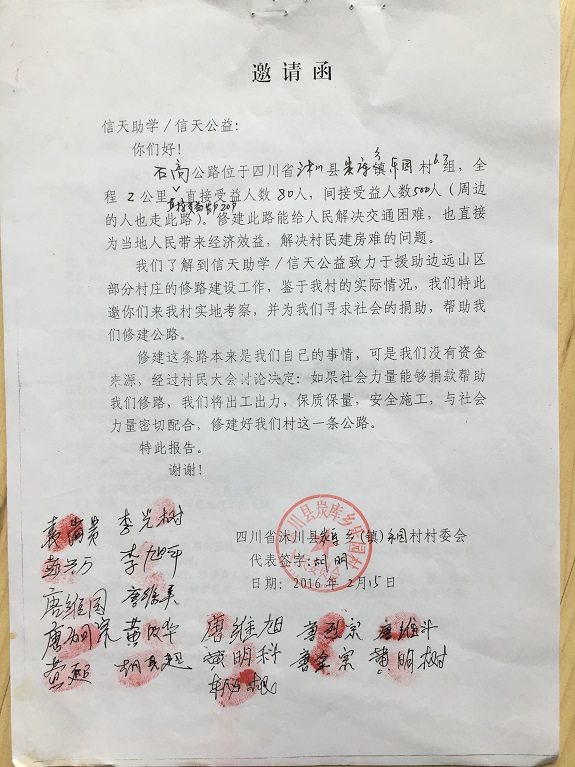 邀请函
信天助学/信天公益：
你们好！
石高公路位于四川省沐川县炭库乡镇乐园村6.7组，全
程2公里，直接受益人数80人，间接受益人数500人（周边
直接受益户20户
的人也走此路）。修建此路能给人民解决交通困难，也直接
为当地人民带来经济效益，解决村民建房难的问题。
我们了解到信天助学/信天公益致力于援助边远山区
部分村庄的修路建设工作，鉴于我村的实际情况，我们特此
邀你们来我村实地考察，并为我们寻求社会的捐助，帮助我
们修建公路。
修建这条路本来是我们自己的事情，可是我们没有资金
来源，经过村民大会讨论决定：如果社会力量能够捐款帮助
我们修路，我们将出工出力，保质保量，安全施工，与社会
力量密切配合，修建好我们村这一条公路。
特此报告。
谢谢！
四川省沐川县炭库乡（镇）乐园村村委会
代表签字：胡明
日期：2016年2月15日
川县炭库乡乐园村
李光树
李旭平
唐维国 唐维美
黄 唐维旭 唐烈宗 唐维斗
黄明科 黄明树